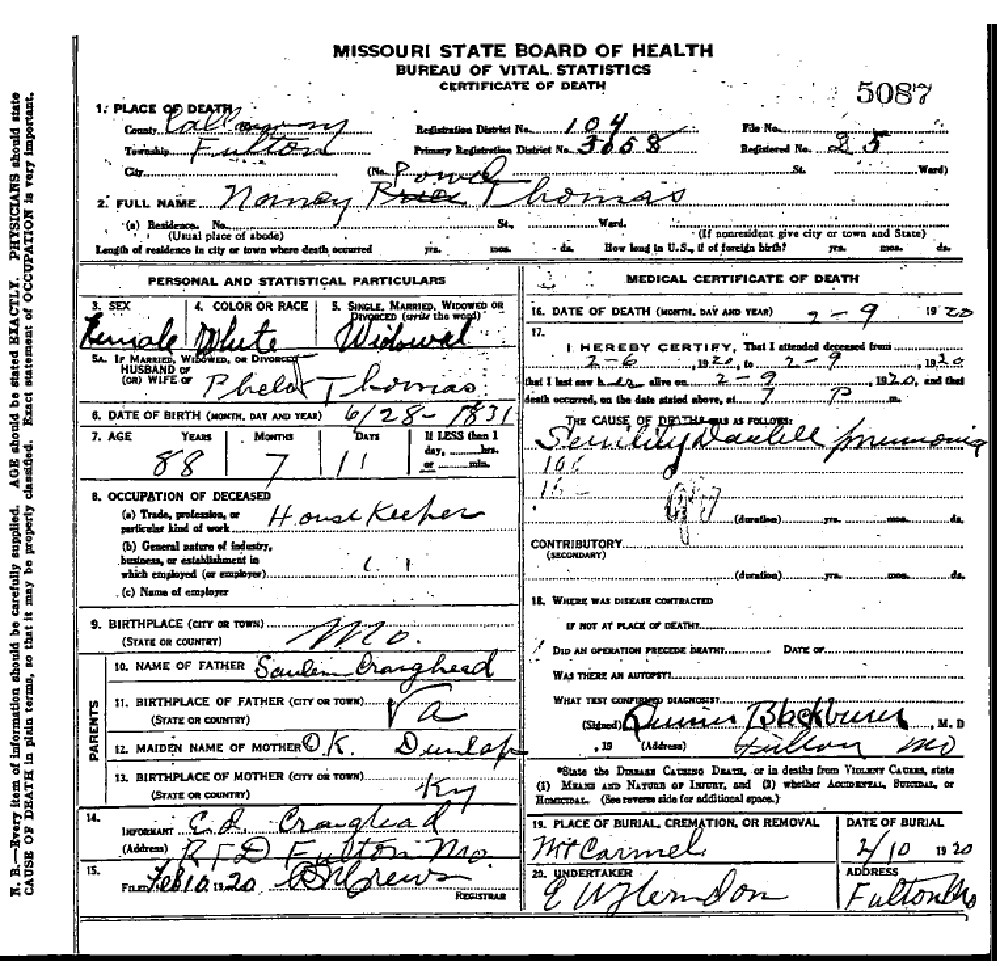 MISSOURI STATE BOARD OF HEALTH
BUREAU OF VITAL STATISTICS
CERTIFICATE OF DEATH
5087
1. PLACE OF DEATH
County Callaway Registration District No. 104 File No.
Township Fulton Primary Registration District No. 3058 Registered No. 25
City (No. St. Ward)
Powel
2. FULL NAME Nancy Thomas
(a) Residence. No. St. Ward.
(Usual place of abode) (If nonresident give city or town and State)
Length of residence in city or town where death occurred yrs. mos. ds. How long in U.S., if of foreign birth? yrs. mos. ds.
PERSONAL AND STATISTICAL PARTICULARS
3. SEX 4. COLOR OR RACE 5. SINGLE, MARRIED, WIDOWED OR DIVORCED (write the word)
Female White Widowed
5A. IF MARRIED, WIDOWED, OR DIVORCED
HUSBAND OF
(OR) WIFE OF Thomas
6. DATE OF BIRTH (MONTH, DAY AND YEAR) 6/28-1831
7. AGE YEARS MONTHS DAYS If LESS than 1
day, ......hrs.
or ......min.
88 7 11
8. OCCUPATION OF DECEASED
(a) Trade, profession, or
particular kind of work House Keeper
(b) General nature of industry,
business, or establishment in
which employed (or employer)
(c) Name of employer
9. BIRTHPLACE (CITY OR TOWN)
(STATE OR COUNTRY) Mo.
PARENTS
10. NAME OF FATHER Craighead
11. BIRTHPLACE OF FATHER (CITY OR TOWN)
(STATE OR COUNTRY) Va
12. MAIDEN NAME OF MOTHER Dunlap
13. BIRTHPLACE OF MOTHER (CITY OR TOWN)
(STATE OR COUNTRY) Ky
14.
INFORMANT Craighead
(Address) RFD Fulton Mo.
15.
FILED Feb 10, 1920 Crews
REGISTRAR
MEDICAL CERTIFICATE OF DEATH
16. DATE OF DEATH (MONTH, DAY AND YEAR) 2-9 1920
17.
I HEREBY CERTIFY, That I attended deceased from
2-6, 1920, to 2-9, 1920
that I last saw her alive on 2-9, 1920, and that
death occurred, on the date stated above, at 7 P m.
THE CAUSE OF DEATH* WAS AS FOLLOWS:
Senility pneumonia
(duration) yrs. mos. ds.
CONTRIBUTORY
(SECONDARY)
(duration) yrs. mos. ds.
18. WHERE WAS DISEASE CONTRACTED
IF NOT AT PLACE OF DEATH?
DID AN OPERATION PRECEDE DEATH? DATE OF
WAS THERE AN AUTOPSY?
WHAT TEST CONFIRMED DIAGNOSIS?
(Signed) Blackburn, M. D
, 19 (Address) Fulton Mo
*State the DISEASE CAUSING DEATH, or in deaths from VIOLENT CAUSES, state
(1) MEANS AND NATURE OF INJURY, and (2) whether ACCIDENTAL, SUICIDAL, or
HOMICIDAL. (See reverse side for additional space.)
19. PLACE OF BURIAL, CREMATION, OR REMOVAL DATE OF BURIAL
Mt Carmel 2/10 1920
20. UNDERTAKER ADDRESS
E W Herndon Fulton Mo
N. B.—Every item of information should be carefully supplied. AGE should be stated EXACTLY. PHYSICIANS should state
CAUSE OF DEATH in plain terms, so that it may be properly classified. Exact statement of OCCUPATION is very important.